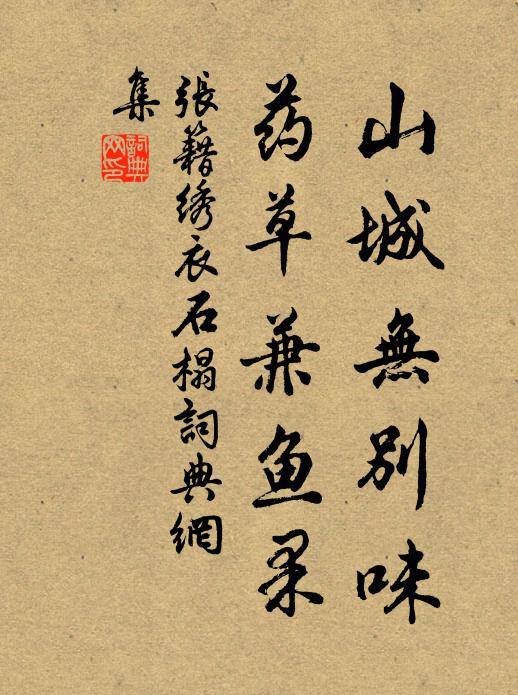 山城無別味
药草兼鱼果
張籍绣衣石榻詞典網
集
詞典网印